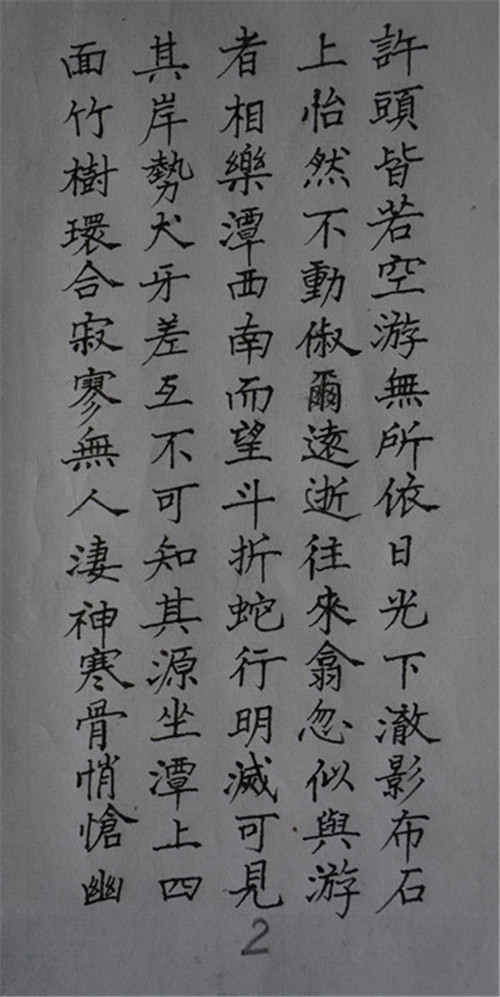 許頭皆若空游無所依日光下澈影布石
上怡然不動俶爾遠逝往來翕忽似與游
者相樂潭西南而望斗折蛇行明滅可見
其岸勢犬牙差互不可知其源坐潭上四
面竹樹環合寂寥無人淒神寒骨悄愴幽
2